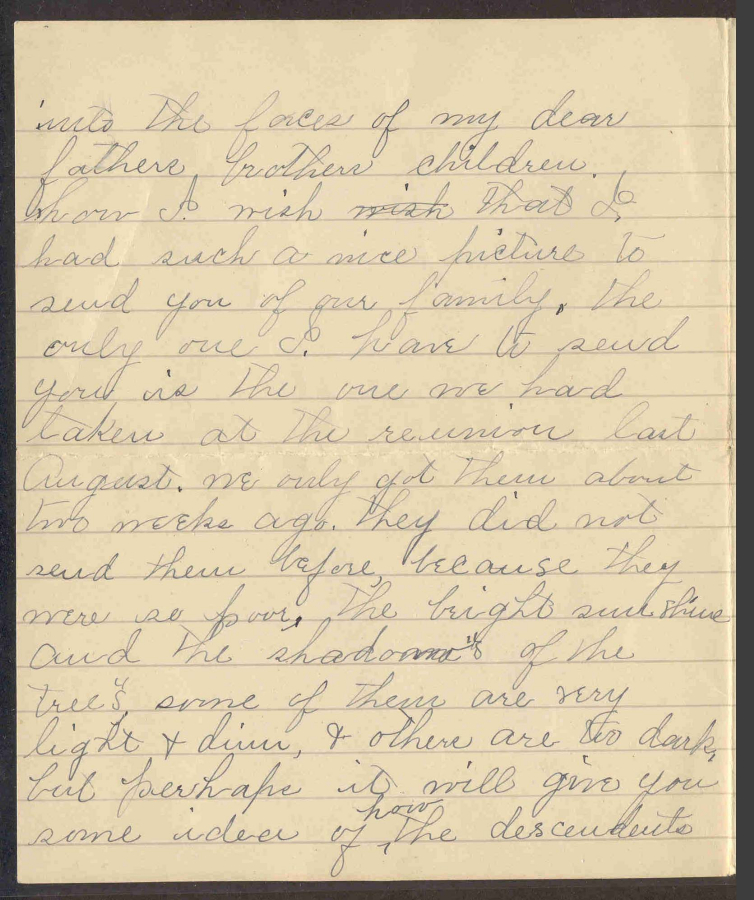 into the faces of my dear
fathers, brothers children.
how I. wish wish that I.
had such a nice picture to
send you of our family, the
only one I. have to send
you is the one we had
taken at the reunion last
August. we only got them about
two weeks ago. they did not
send them before, because they
were so poor, the bright sunshine
and the shadow"s of the
tree"s, some of them are very
light & dim, & others are too dark,
but perhaps it will give you
some idea of how the descendents